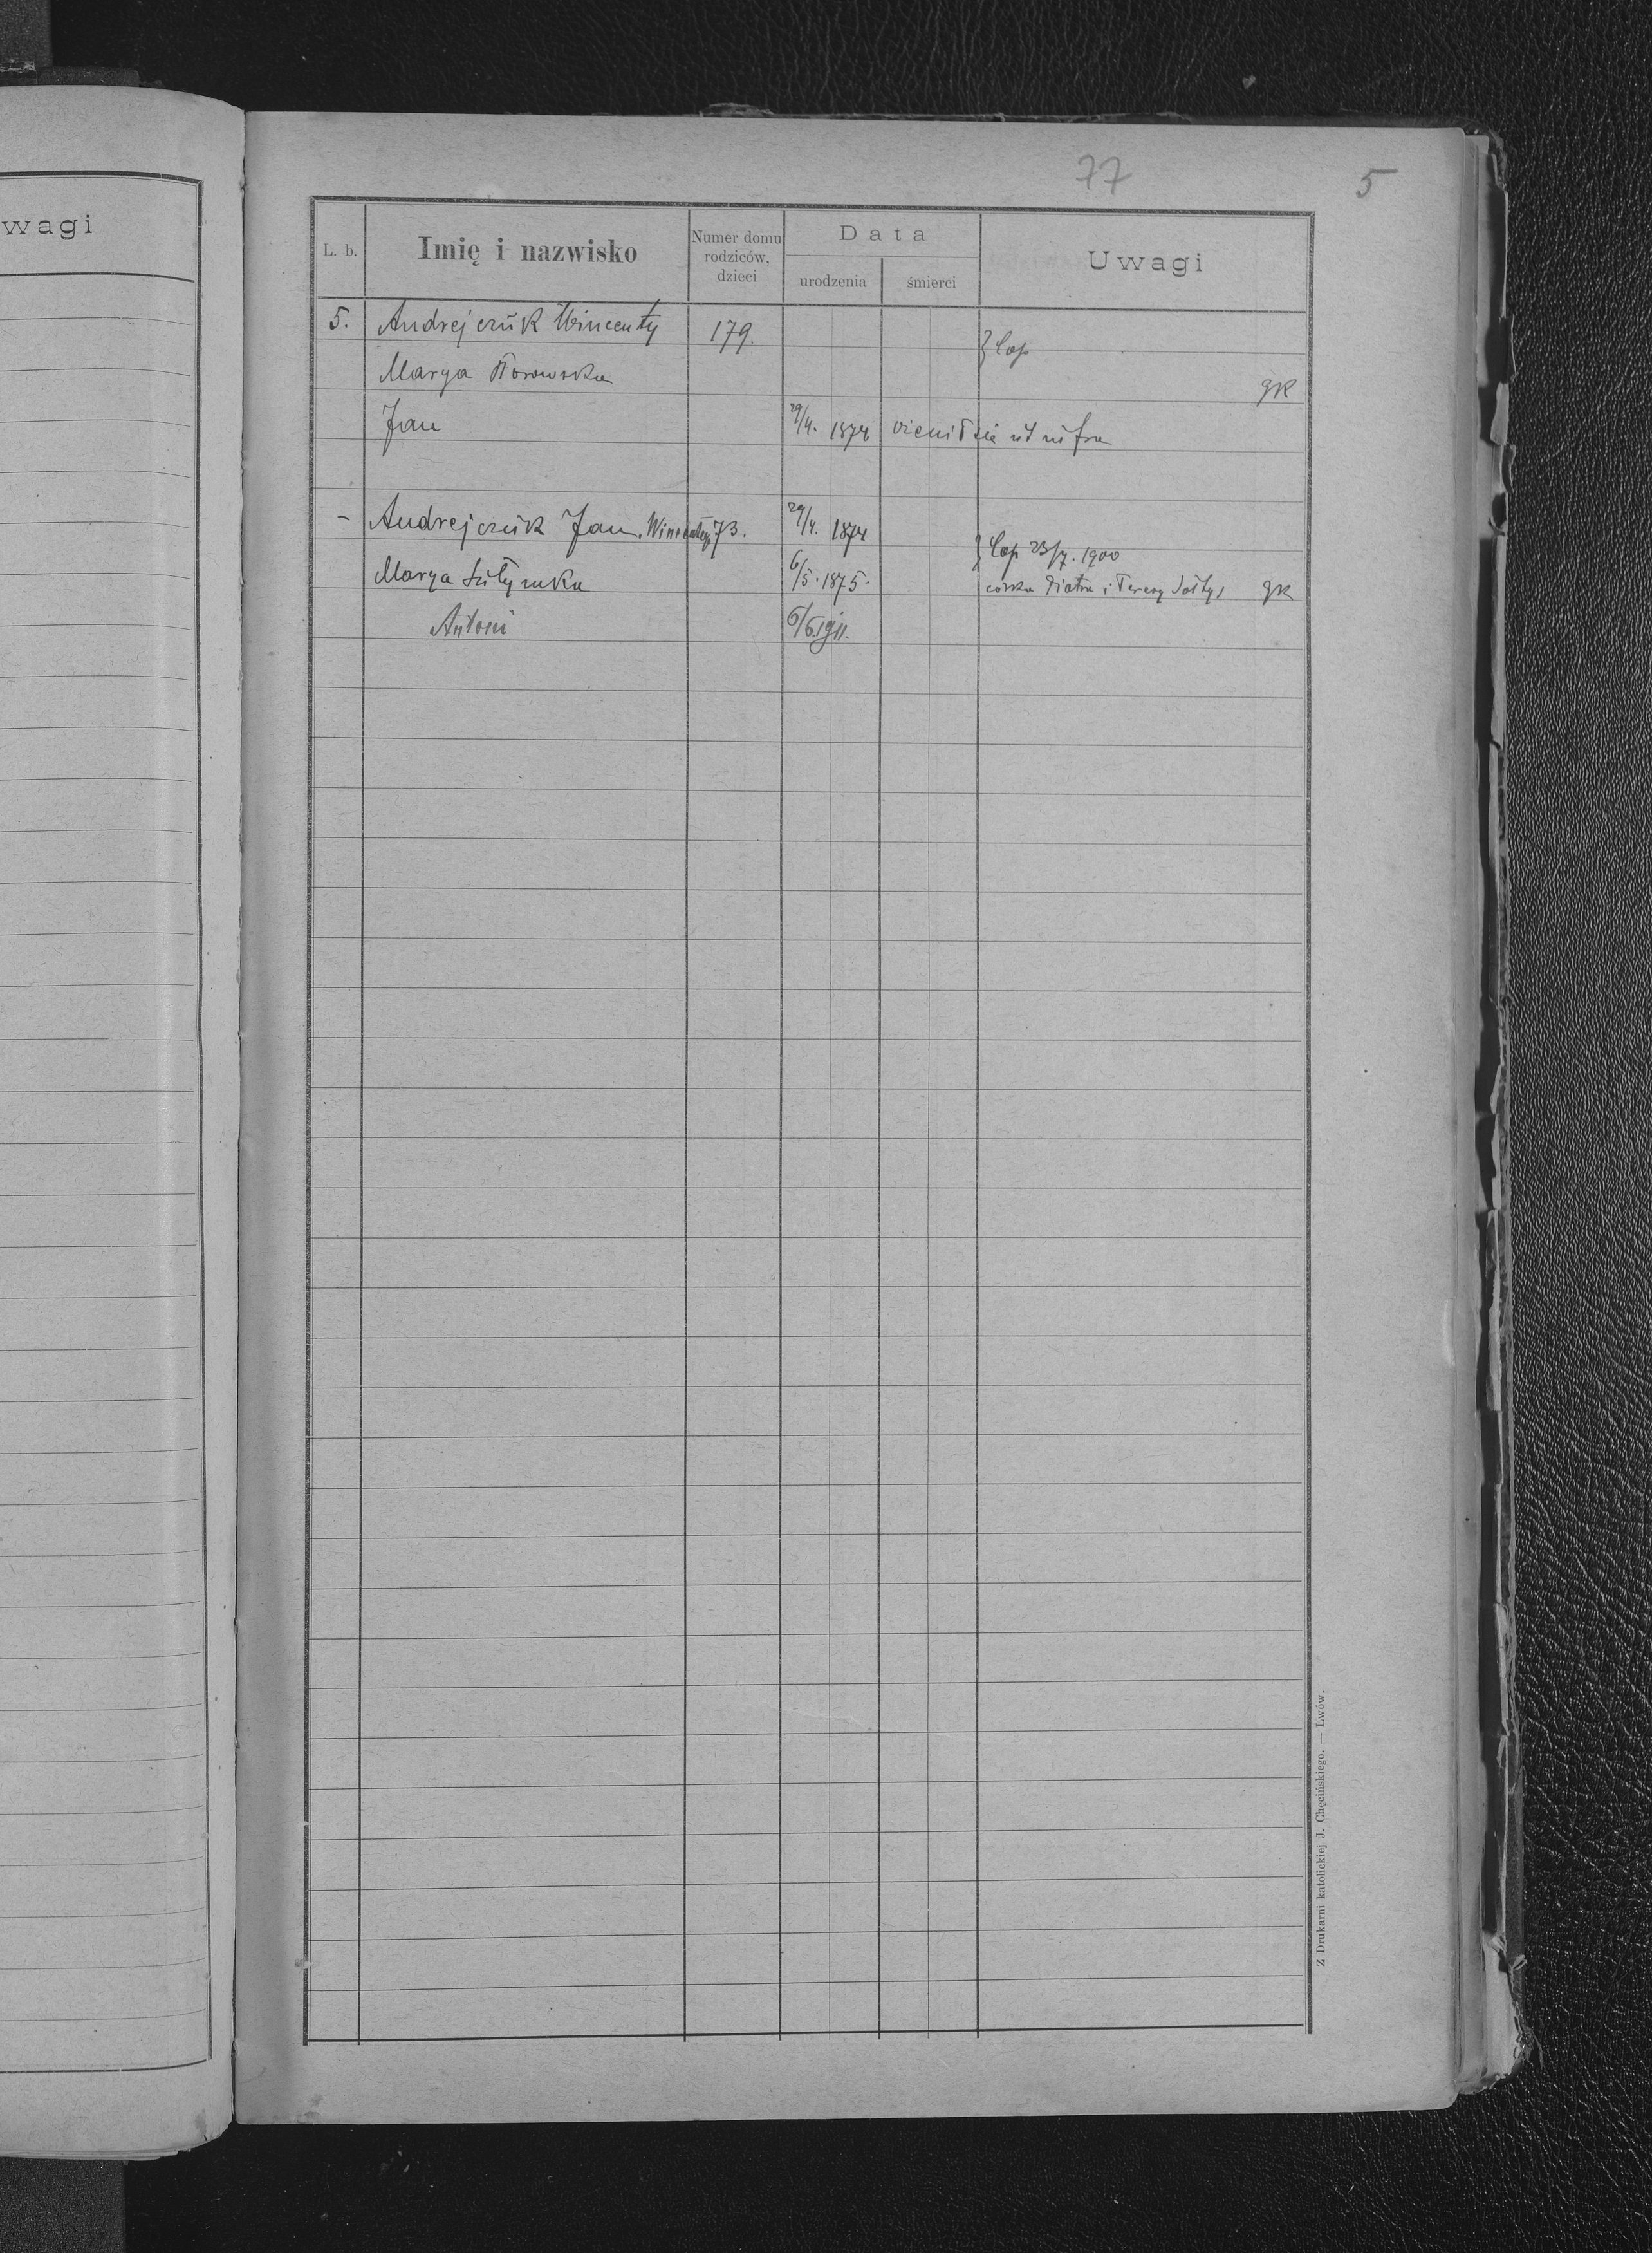 wagi
77
5
L. b.
Imię i nazwisko
Numer domu rodziców, dzieci
Data
urodzenia
śmierci
Uwagi
5. Andrejczuk Wincenty 179. } Cop
Marya gk
Jan 29/4. 1874 ożenił się ut infra
- Andrejczuk Jan, Wincentego 73. 29/4. 1874 } Cop 23/7. 1900
Marya 6/5. 1875. córka Piotra i Teresy gk
Antoni 6/6. 1911.
Z Drukarni katolickiej J. Chęcińskiego. — Lwów.